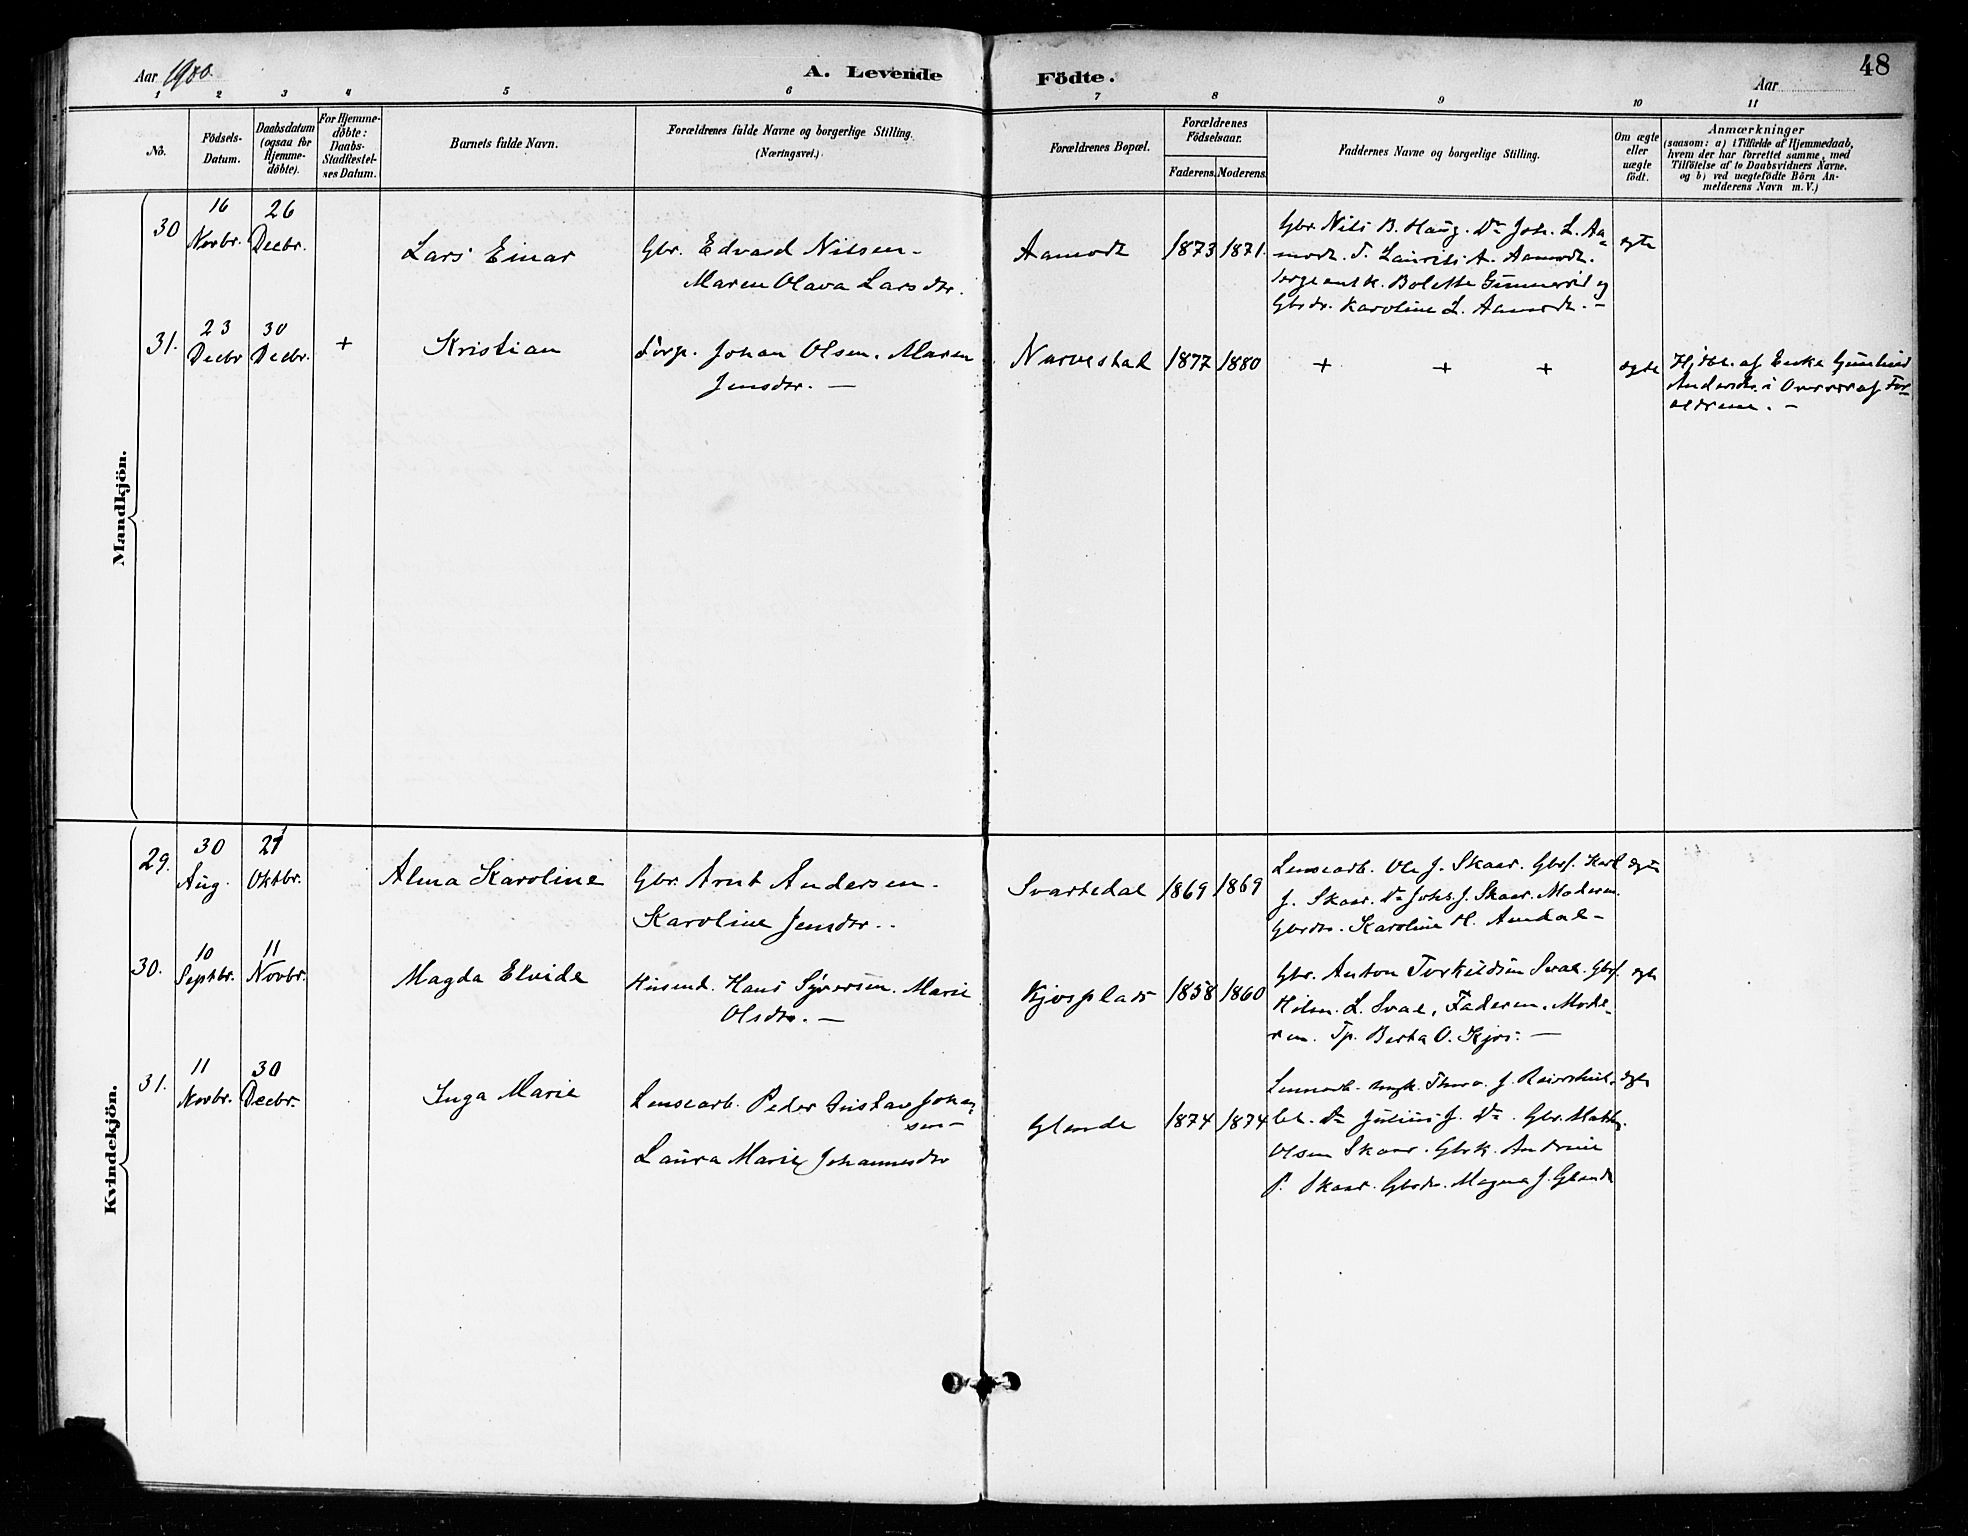 Aar 1900.
A. Levende Födte.
Aar
48
1 2 3 4 5 6 7 8 9 10 11
No.
Födsels-Datum.
Daabsdatum (ogsaa for Hjemmedöbte).
For Hjemmedöbte: Daabs-Stadfæstelses Datum.
Barnets fulde Navn.
Forældrenes fulde Navne og borgerlige Stilling.
(Næringsvei.)
Forældrenes Bopæl.
Forældrenes Födselsaar.
Faderens. Moderens.
Faddernes Navne og borgerlige Stilling.
Om ægte eller uægte födt.
Anmærkninger
(saasom: a) i Tilfælde af Hjemmedaab,
hvem der har forrettet samme, med
Tilföielse af to Daabsvidners Navne.
og b) ved uægtefödte Börn An-
melderens Navn m. V.)
Mandkjön.
30 16 Novbr. 26 Decbr. Lars Einar Gbr. Edvard Nilsen-
Maren Olava Larsdtr.
Aamodt 1873 1871.
Gbr. Nils B. Haug. Do Joh. L. Aa-
modt. T. Laurits A. Aamodt.
Sergeant k. Bolette Gimmerød og
Gbrdr. Karoline L. Aamodt. -
ægte
31. 23 Decbr 30 Decbr. + Kristian Johan Olsen. Maren
Jensdtr. -
Narvestad 1877 1880 + + + ægte
Hjdbt. af Enke
Anderstr. i Overvær af For-
ældrene. -
Kvindekjön.
29. 30 Aug. 21 Oktbr. Alma Karoline Gbr. Arnt Andersen.
Karoline Jensdtr..
Svartedal 1869 1869
Lensearb. Ole J. Skaar. Gbrs. Karl
J. Skaar. Do Johs. J. Skaar. Moderen.
Gbrdtr. Karoline H. Amdal-
ægte
30. 10 Septbr. 11 Novbr. Magda Elvide Husmd. Hans Syversen. Marie
Olsdtr. -
Kjosplads 1858 1860
Gbr. Anton Torkildsen Svae. Gbrs.
Hilm. L. Svae, Faderen, Mode-
ren. Tp. Berta O. Kjos. -
ægte
31. 11 Novbr. 30 Decbr. Inga Marie Lensearb. Peder Gustav Johan
sen-
Laura Marie Johannesdtr
Glende 1874 1874
Do Julius J. Do. Gbr. Math.
Olsen Skaar. Gbrk. Andrine
P. Skaar. Gbrdr. Magna J. Glende
ægte